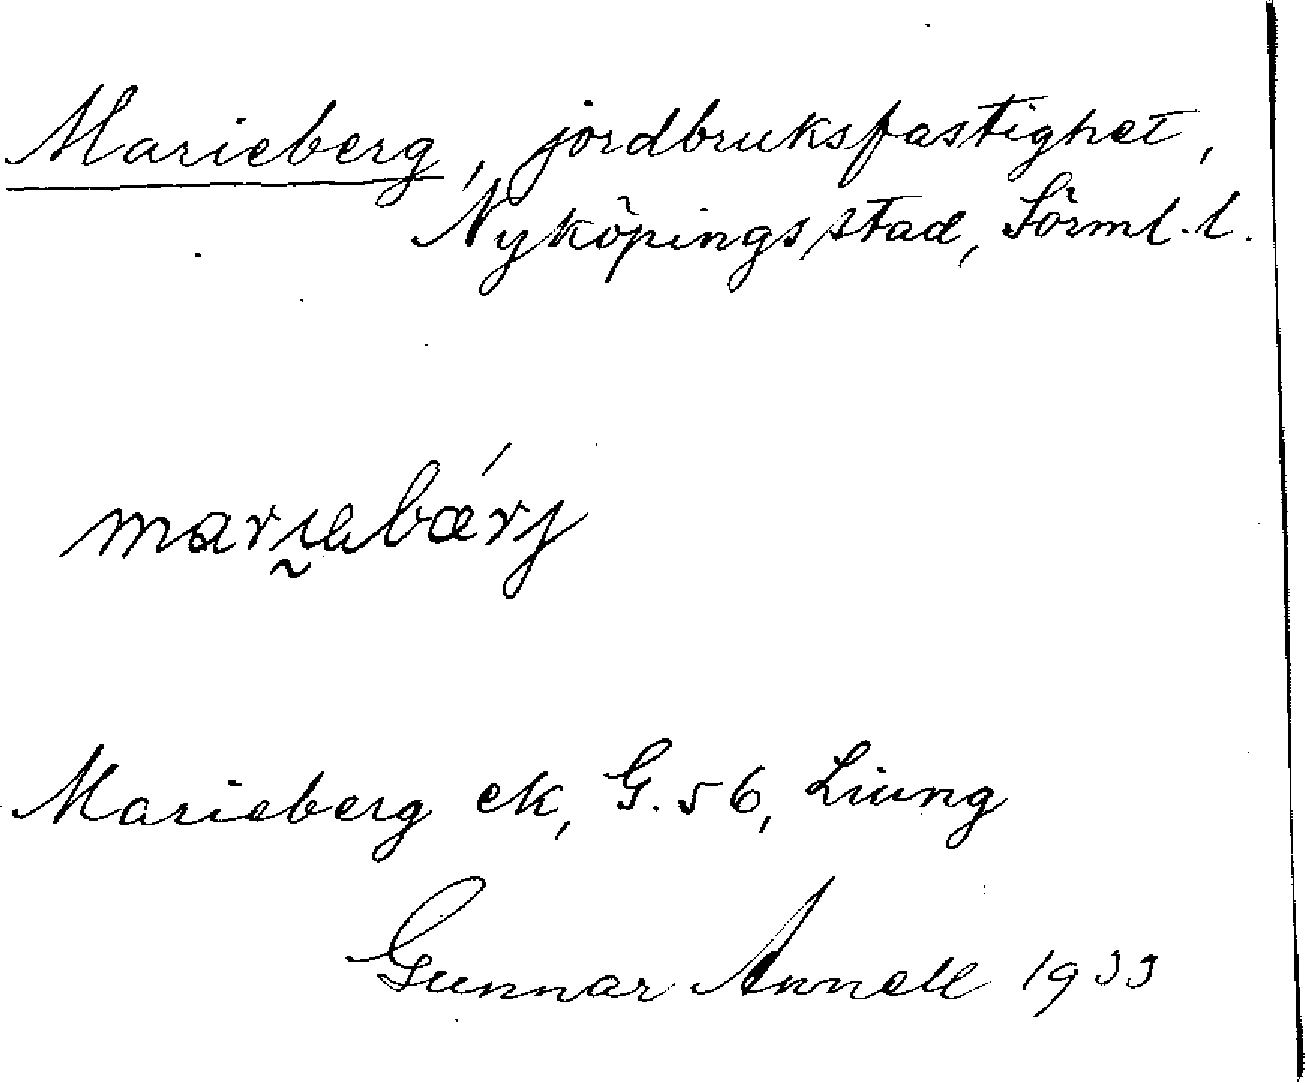 Marieberg, jordbruksfastighet,
Nyköpings stad, Sörml. l.
Marieberg ek, G. 56, Liung
Gunnar Annell 1933